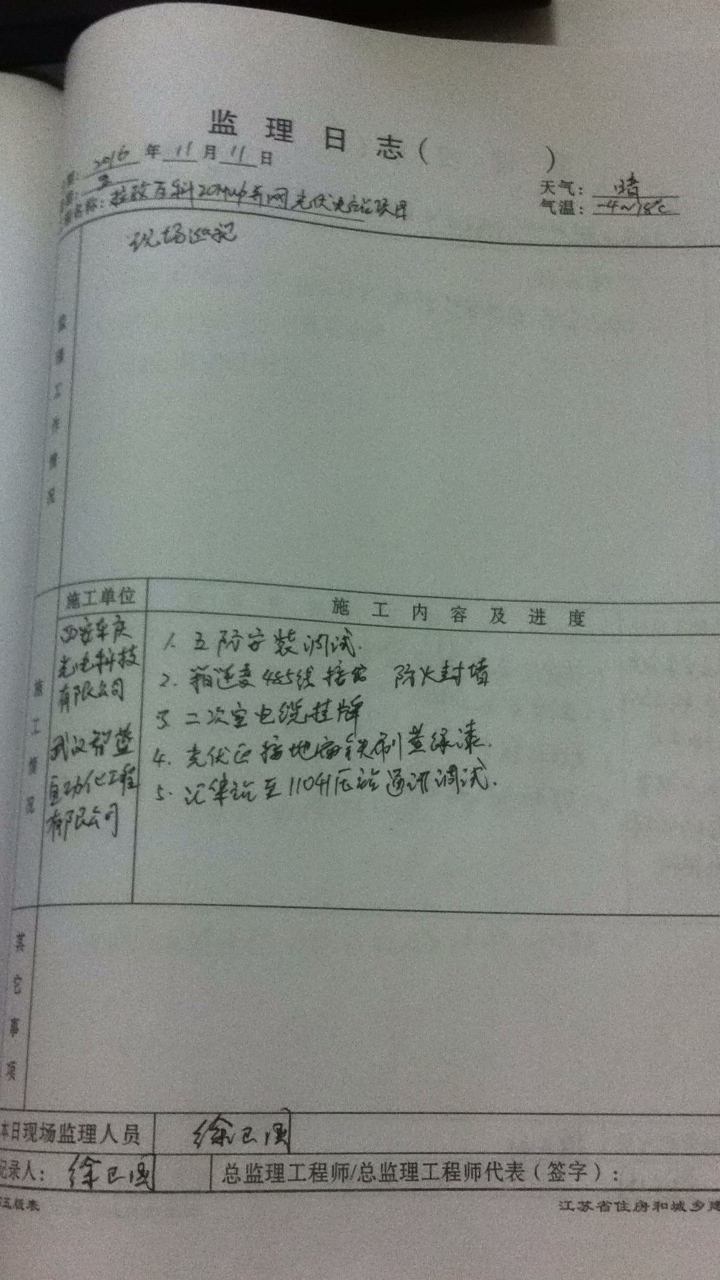 监理日志( )
期: 2016 年 11 月 11 日
天气: 晴
期: 五
气温: -4~18℃
程名称: 拉孜百科20MW并网光伏发电项目
监理工作情况
现场巡视
施工单位
施工内容及进度
施工情况
光电科技
有限公司
武汉智蓝
自动化工程
有限公司
1. 五防安装调试.
2. 箱逆变485线接线 防火封堵
3 二次室电缆挂牌
4. 光伏区接地扁铁刷黄绿漆.
5. 汇集站至110kV压站通讯调试.
其它事项
本日现场监理人员 徐卫国
记录人: 徐卫国
总监理工程师/总监理工程师代表(签字):
五版表
江苏省住房和城乡建